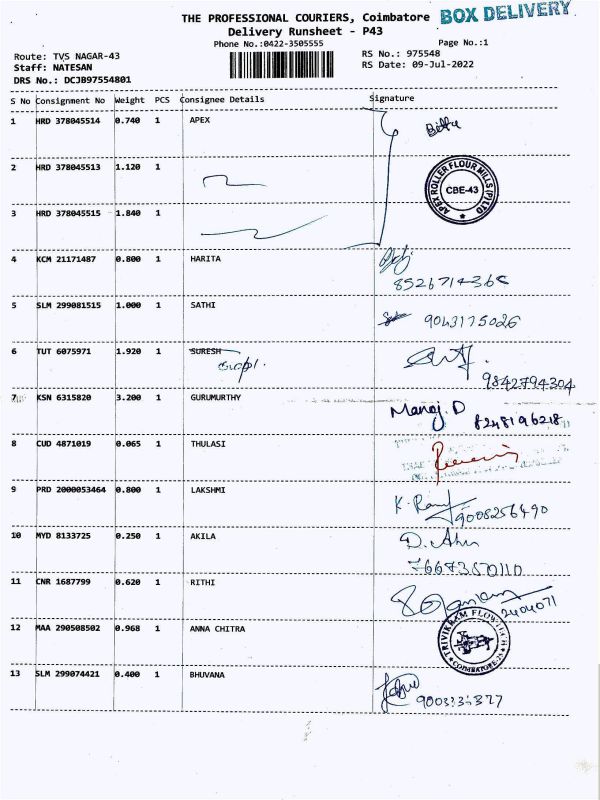 THE PROFESSIONAL COURIERS, Coimbatore BOX DELIVERY
Delivery Runsheet - P43
Phone No.:0422-3505555 Page No.:1
Route: TVS NAGAR-43 RS No.: 975548
Staff: NATESAN RS Date: 09-Jul-2022
DRS No.: DCJB97554801
S No Consignment No Weight PCS Consignee Details Signature
1 HRD 378045514 0.740 1 APEX
2 HRD 378045513 1.120 1
APEX ROLLER FLOUR MILLS (P) LTD CBE-43
3 HRD 378045515 1.840 1
4 KCM 21171487 0.800 1 HARITA
5 SLM 299081515 1.000 1 SATHI
9043175026
6 TUT 6075971 1.920 1 SURESH
9842794304
7 KSN 6315820 3.200 1 GURUMURTHY
Manoj. D
8248196218
8 CUD 4871019 0.065 1 THULASI
9 PRD 2000053464 0.800 1 LAKSHMI
9008256490
10 MYD 8133725 0.250 1 AKILA
11 CNR 1687799 0.620 1 RITHI
2404071
12 MAA 290508502 0.968 1 ANNA CHITRA
TRIVIKRAM FLOWTECH COIMBATORE-25
13 SLM 299074421 0.400 1 BHUVANA